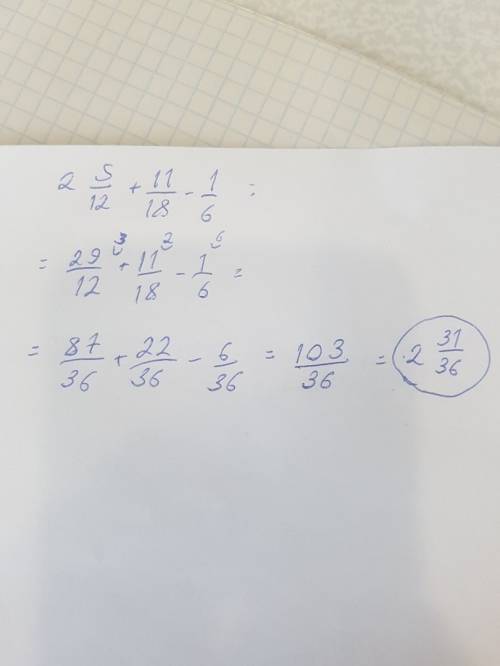 2 5/12 + 11/18 - 1/6 =
= 29/12 ³ + 11/18 ² - 1/6 ⁶ =
= 87/36 + 22/36 - 6/36 = 103/36 = 2 31/36